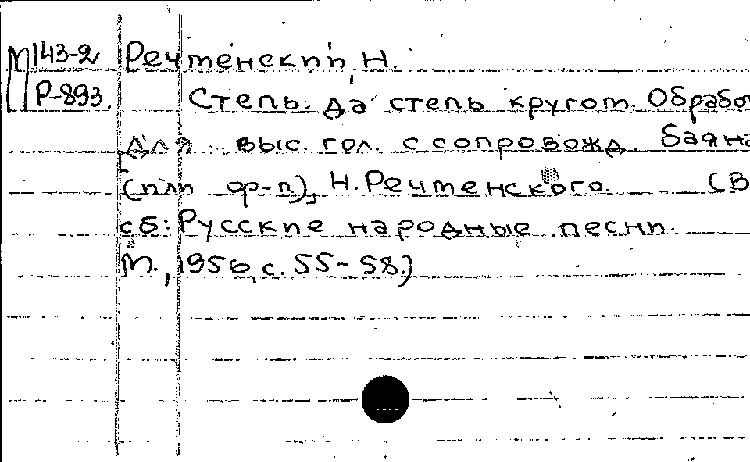 М143-2 Речменский, Н.
Р-893.
Степь да степь кругом. Обрабо
для выс. гол. с сопровожд. баяна
(или ф-п), Н. Речменского. (В
сб: Русские народные песни.
М., 1956, с. 55-58.)